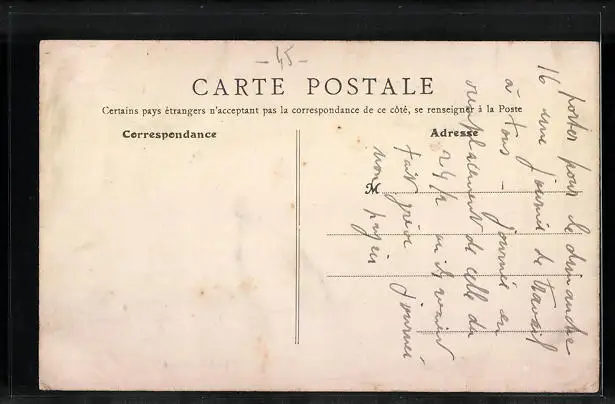 - 45
CARTE POSTALE
Certains pays étrangers n'acceptant pas la correspondance de ce côté, se renseigner à la Poste
Correspondance
Adresse
M
porter pour le dimanche
16 une journée de travail
à tous - journée en
remplacement de celle du
24/2 où ils avaient
fait grève journée
non payée